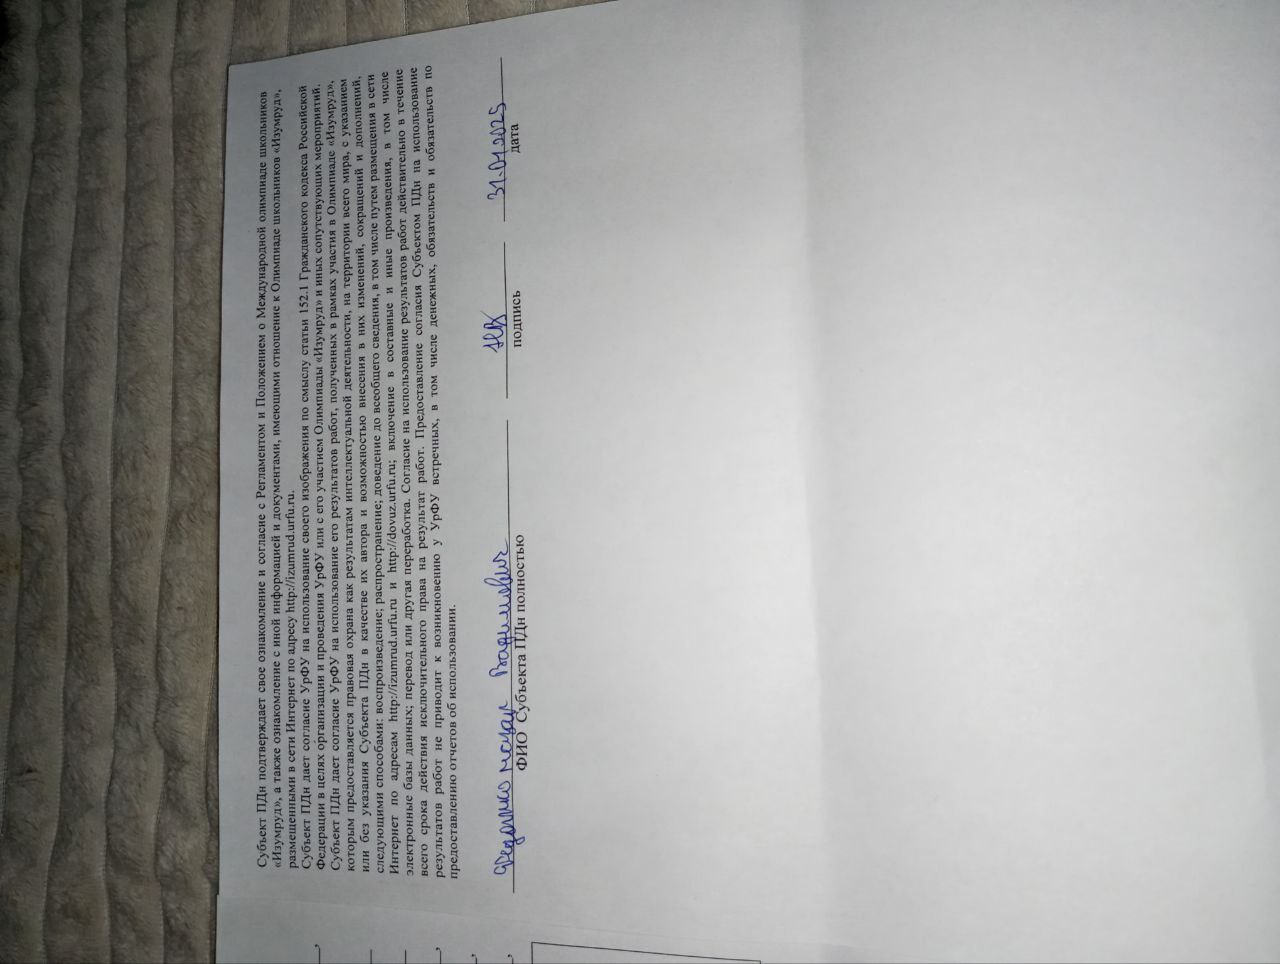 Субъект ПДн подтверждает свое ознакомление и согласие с Регламентом и Положением о Международной олимпиаде школьников
«Изумруд», а также ознакомление с иной информацией и документами, имеющими отношение к Олимпиаде школьников «Изумруд»,
размещенными в сети Интернет по адресу http://izumrud.urfu.ru.
Субъект ПДн дает согласие УрФУ на использование своего изображения по смыслу статьи 152.1 Гражданского кодекса Российской
Федерации в целях организации и проведения УрФУ или с его участием Олимпиады «Изумруд» и иных сопутствующих мероприятий.
Субъект ПДн дает согласие УрФУ на использование его результатов работ, полученных в рамках участия в Олимпиаде «Изумруд»,
которым предоставляется правовая охрана как результатам интеллектуальной деятельности, на территории всего мира, с указанием
или без указания Субъекта ПДн в качестве их автора и возможностью внесения в них изменений, сокращений и дополнений,
следующими способами: воспроизведение; распространение; доведение до всеобщего сведения, в том числе путем размещения в сети
Интернет по адресам http://izumrud.urfu.ru и http://dovuz.urfu.ru; включение в составные и иные произведения, в том числе
электронные базы данных; перевод или другая переработка. Согласие на использование результатов работ действительно в течение
всего срока действия исключительного права на результат работ. Предоставление согласия Субъектом ПДн на использование
результатов работ не приводит к возникновению у УрФУ встречных, в том числе денежных, обязательств и обязательств по
предоставлению отчетов об использовании.
Вадимович 31.01.2025
ФИО Субъекта ПДн полностью подпись дата